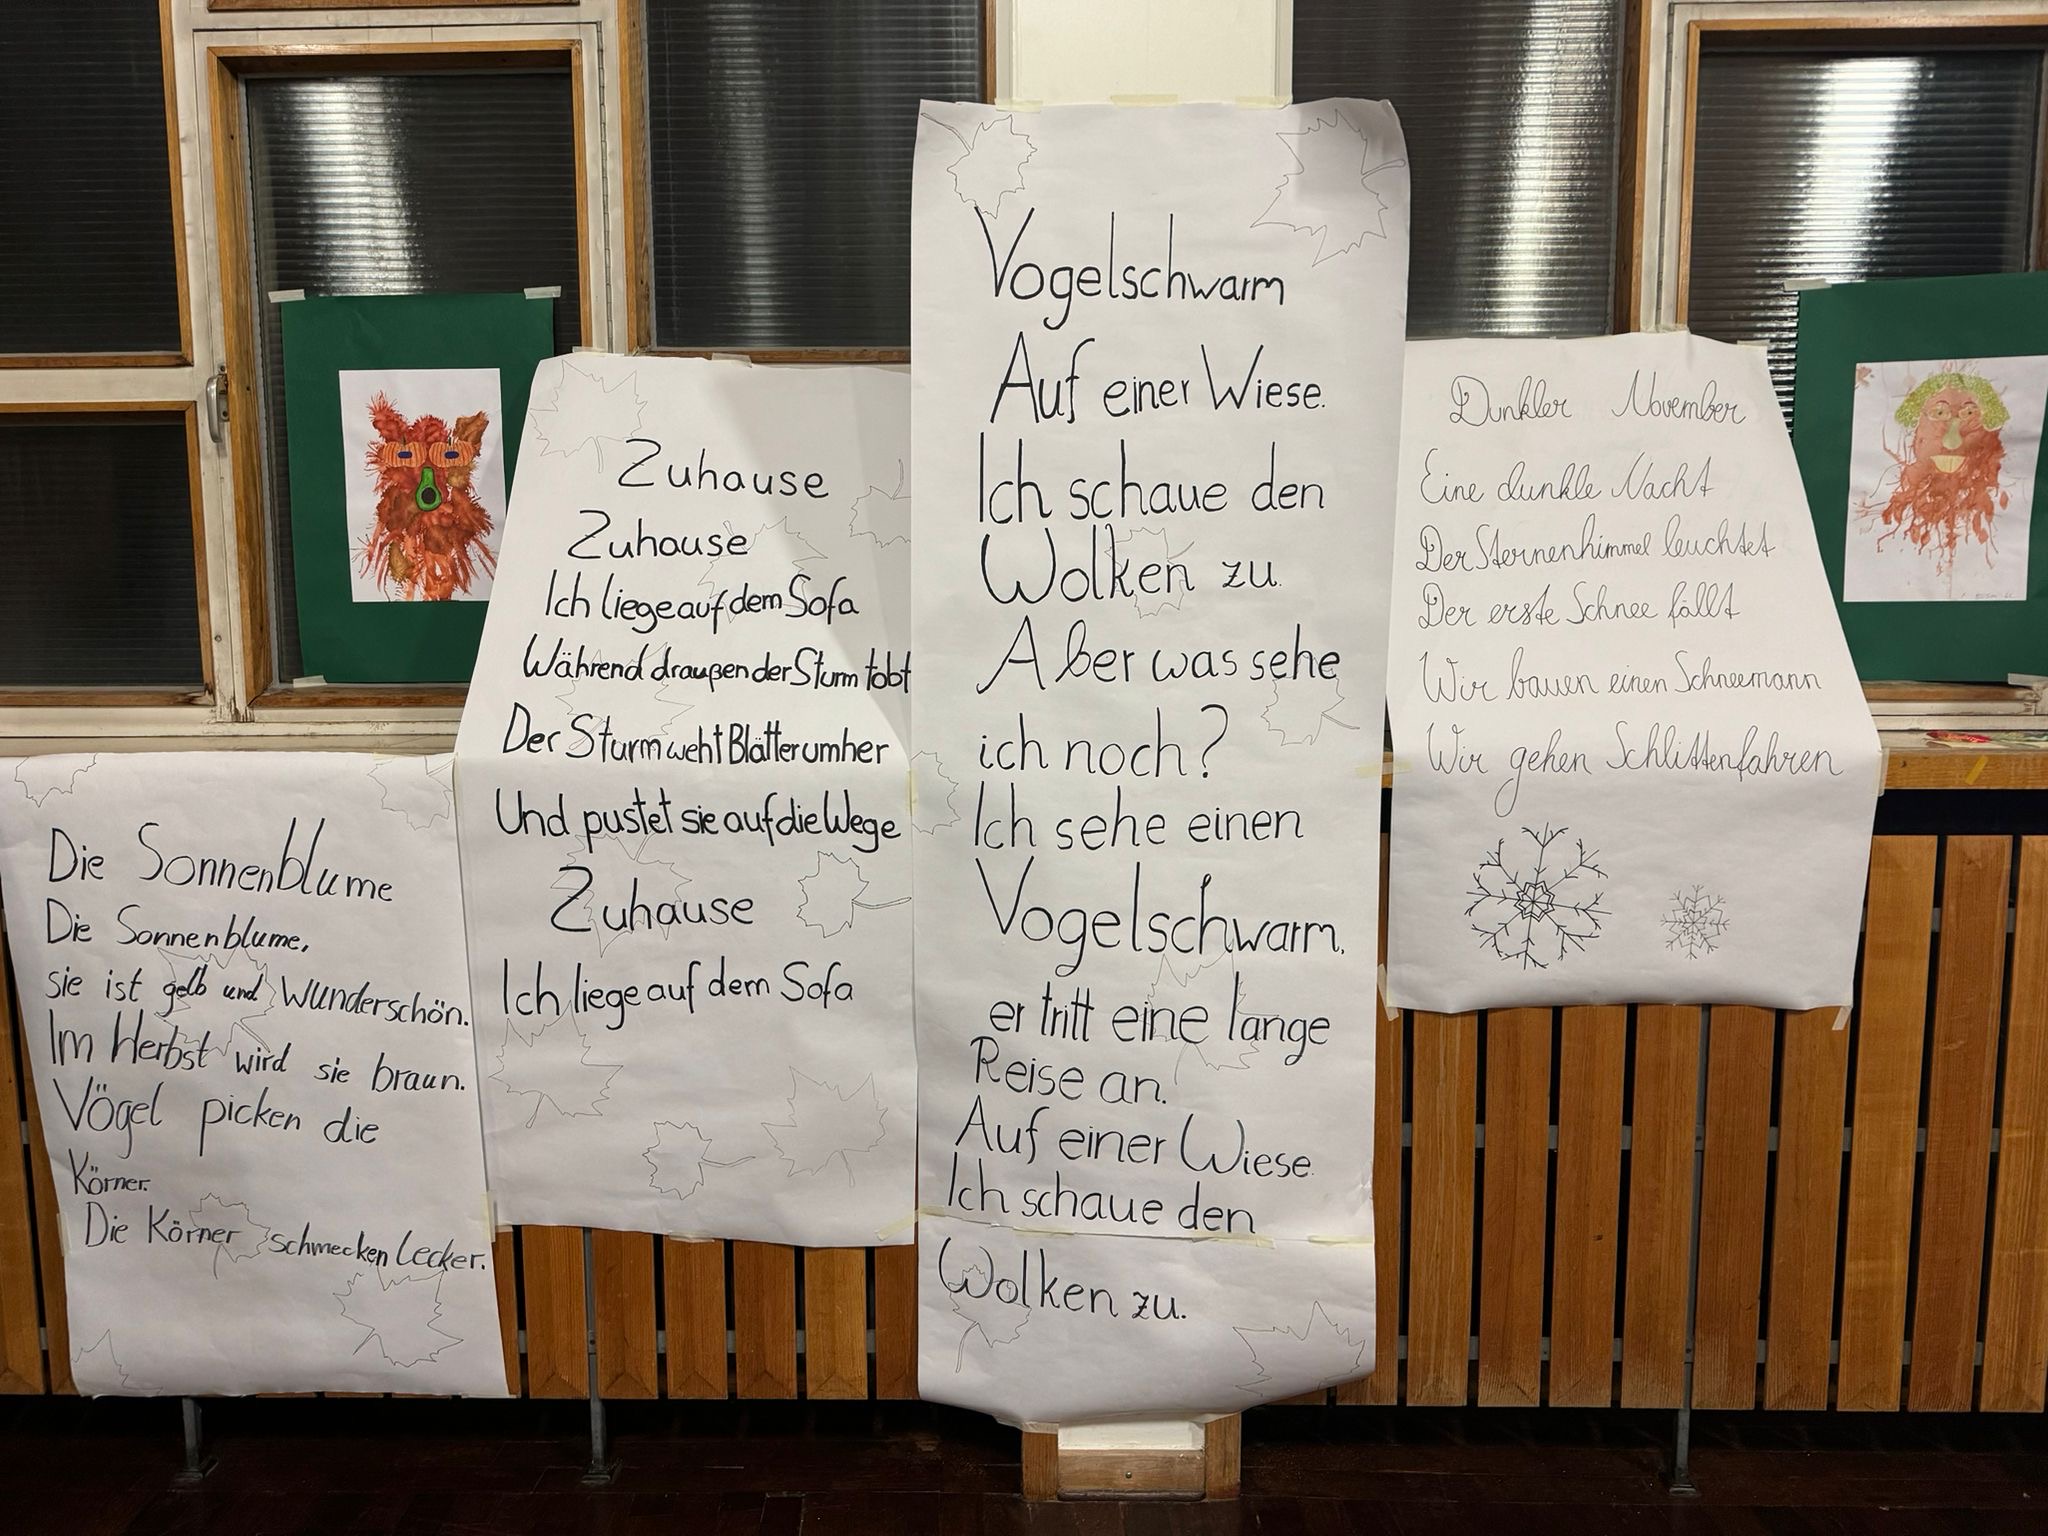 Die Sonnenblume
Die Sonnenblume,
sie ist gelb und wunderschön.
Im Herbst wird sie braun.
Vögel picken die
Körner.
Die Körner schmecken lecker.
Zuhause
Zuhause
Ich liege auf dem Sofa
Während draußen der Sturm tobt
Der Sturm weht Blätter umher
Und pustet sie auf die Wege
Zuhause
Ich liege auf dem Sofa
Vogelschwarm
Auf einer Wiese.
Ich schaue den
Wolken zu.
Aber was sehe
ich noch?
Ich sehe einen
Vogelschwarm,
er tritt eine lange
Reise an.
Auf einer Wiese.
Ich schaue den
Wolken zu.
Dunkler November
Eine dunkle Nacht
Der Sternenhimmel leuchtet
Der erste Schnee fällt
Wir bauen einen Schneemann
Wir gehen Schlittenfahren